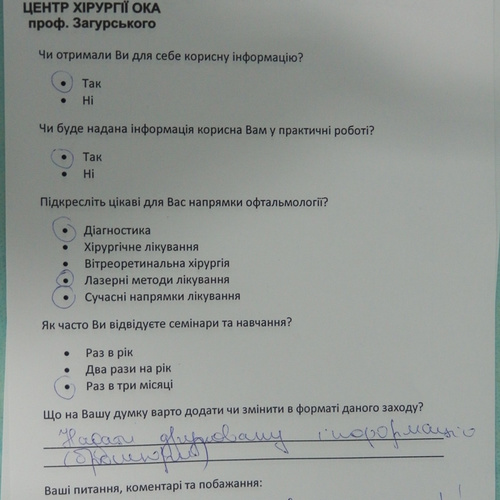 ЦЕНТР ХІРУРГІЇ ОКА
проф. Загурського
Чи отримали Ви для себе корисну інформацію?
• Так
• Ні
Чи буде надана інформація корисна Вам у практичні роботі?
• Так
• Ні
Підкресліть цікаві для Вас напрямки офтальмології?
• Діагностика
• Хірургічне лікування
• Вітреоретинальна хірургія
• Лазерні методи лікування
• Сучасні напрямки лікування
Як часто Ви відвідуєте семінари та навчання?
• Раз в рік
• Два рази на рік
• Раз в три місяці
Що на Вашу думку варто додати чи змінити в форматі даного заходу?
Надати друковану інформацію
(брошури)
Ваші питання, коментарі та побажання: